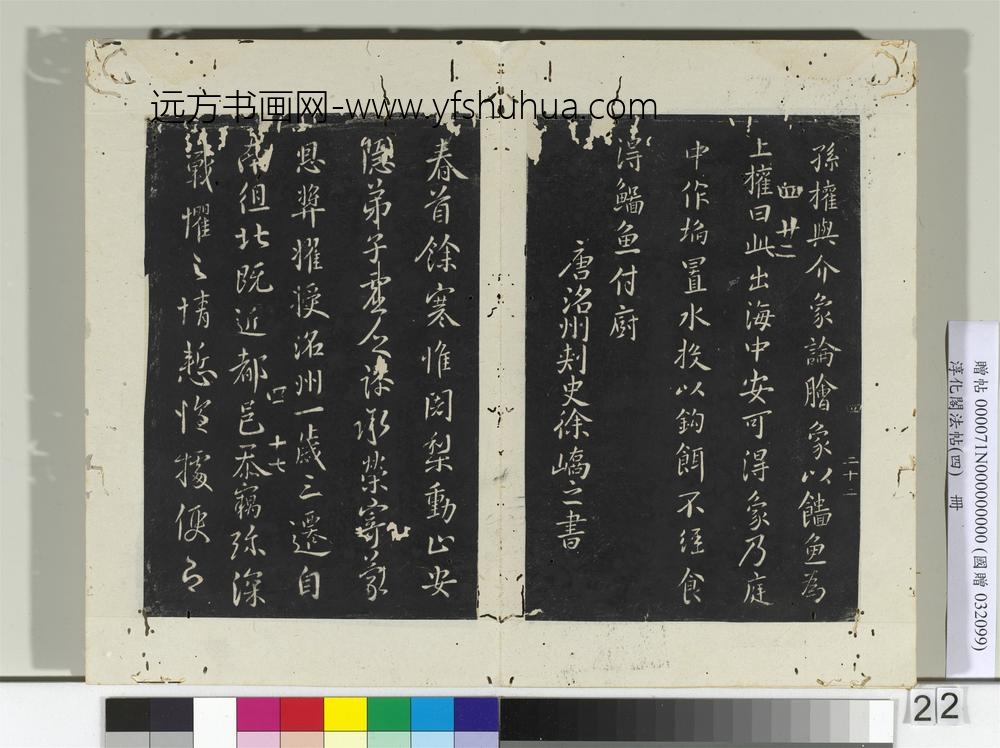 远方书画网-www.yfshuhua.com
孫權與介象論膾象以鯔魚為
四 廿二
上權曰此出海中安可得象乃庭
中作埳置水投以鈎餌不經食
得鯔魚付廚
唐洺州刺史徐嶠之書
四
二十二
春首餘寒惟闍梨動止安
隱弟子虛乏謬承榮寄蒙
恩奬擢授洺州一歲三遷自
南徂北既近都邑忝竊弥深
四 十七
戰懼之情慙惶據便之
贈帖 000071N000000000 (國贈 032099)
淳化閣法帖(四) 冊
22